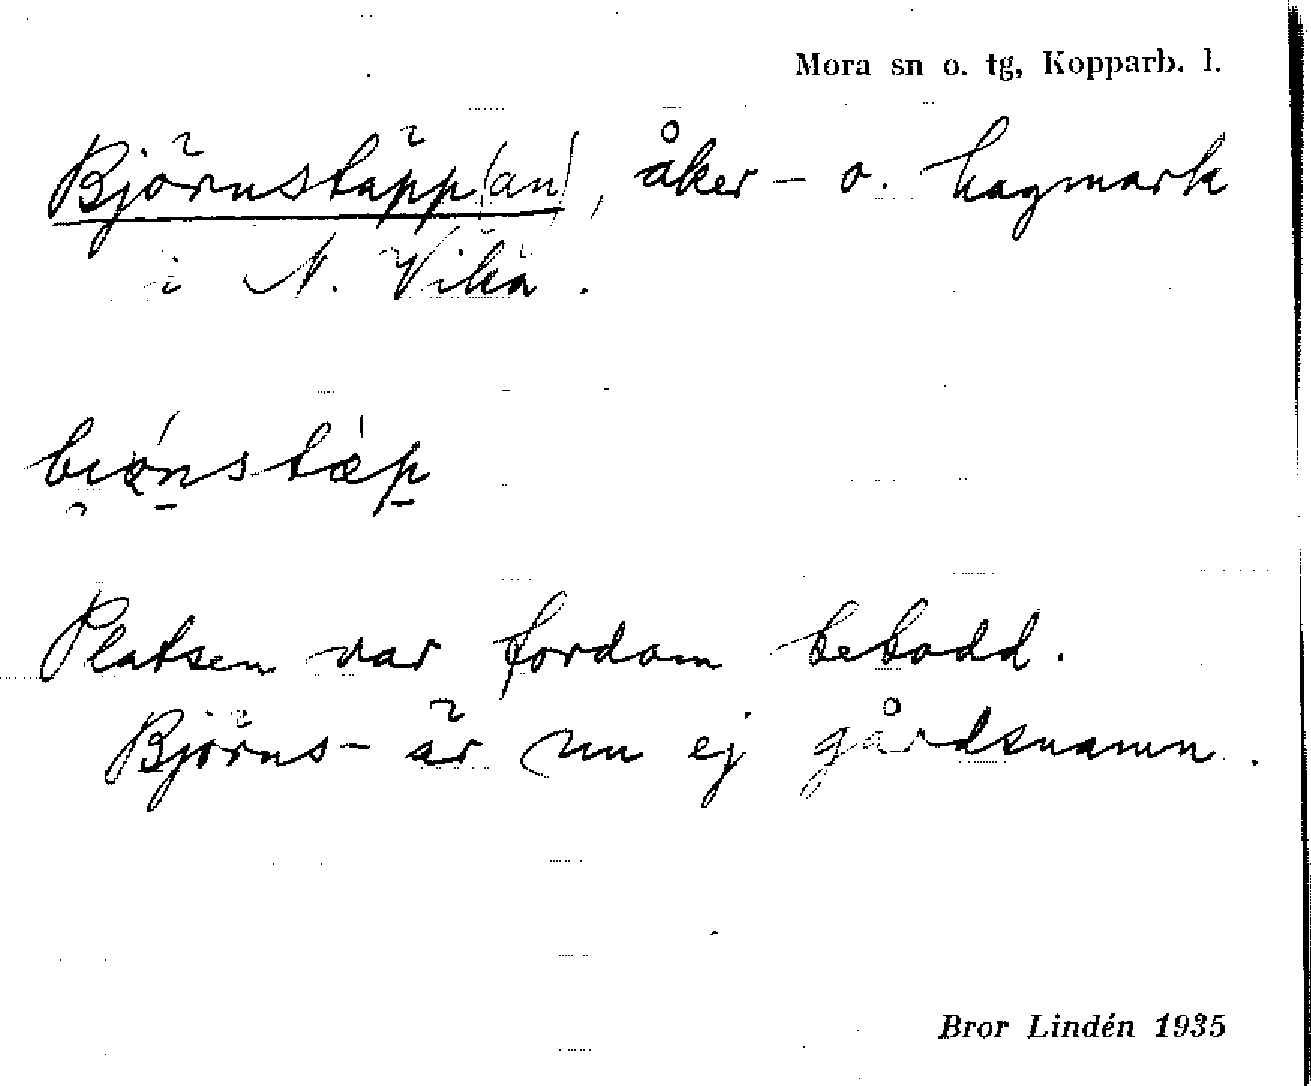 Mora sn o. tg, Kopparb. l.
Björnstäpp(an), åker- o. hagmark
i N. Vika.
bi̯ǿn̠stæ̀p̠
Platsen var fordom bebodd.
Björns- är nu ej gårdsnamn.
Bror Lindén 1935